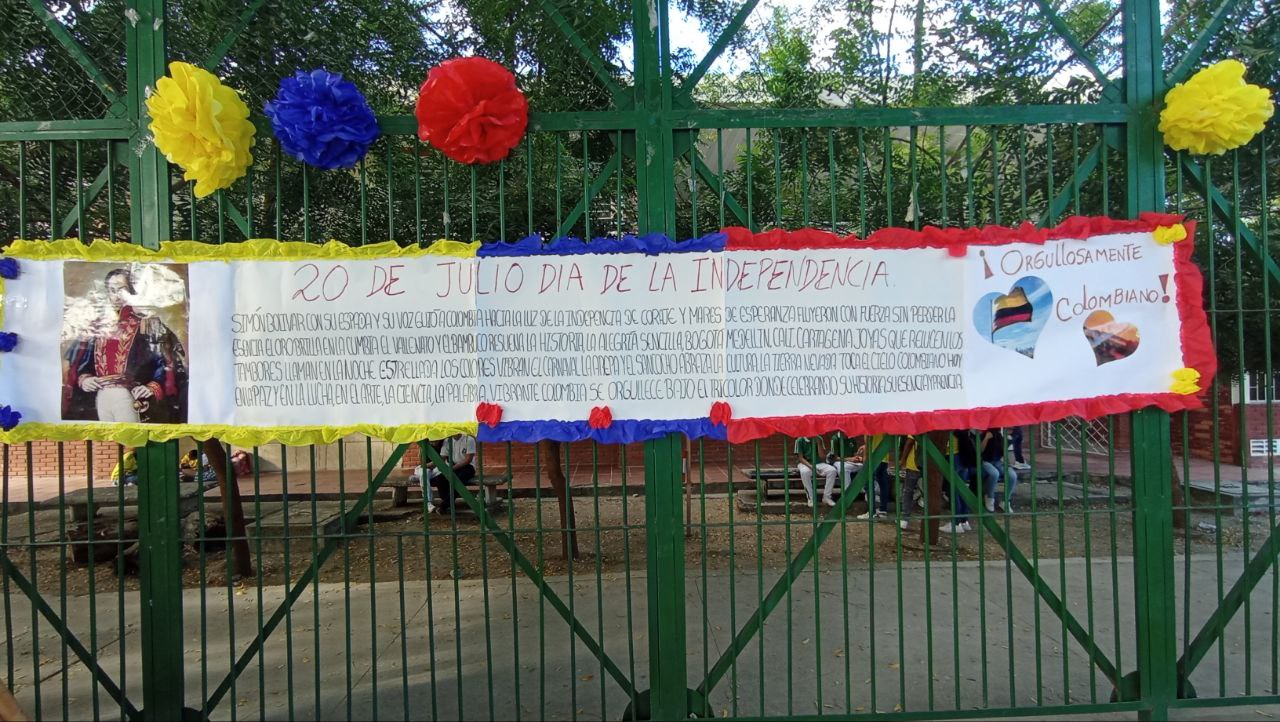 20 DE JULIO DIA DE LA INDEPENDENCIA.
SIMÓN BOLIVAR CON SU ESPADA Y SU VOZ GUIÓ A COLOMBIA HACIA LA LUZ DE LA INDEPENCIA DE CORATE Y MARES DE ESPERANZA FLUYERON CON FUERZA SIN PERDER LA
ESENCIA EL ORO BRILLA EN LA CUMBIA EL VALLENATO Y EL BAMBUCO RESUENA LA HISTORIA, LA ALEGRÍA SENCILLA, BOGOTA MEDELLIN, CALI, CARTAGENA, JOYAS QUE RELUCEN LOS
TAMBORES LLAMAN EN LA NOCHE ESTRELLADA LOS COLORES VIBRAN EL CARNAVAL LA AREPA Y EL SANCOCHO ABRAZA LA CULTURA, LA TIERRA NEVADA TOCA EL CIELO COLOMBIANO HOY
EN LA PAZ Y EN LA LUCHA, EN EL ARTE, LA CIENCIA, LA PALABRA, VIBRANTE COLOMBIA SE ORGULLECE BAJO EL TRICOLOR DONDE CELEBRANDO SU HISTORIA SU ESENCIA Y
¡ORGULLOSAMENTE
COLOMBIANO!